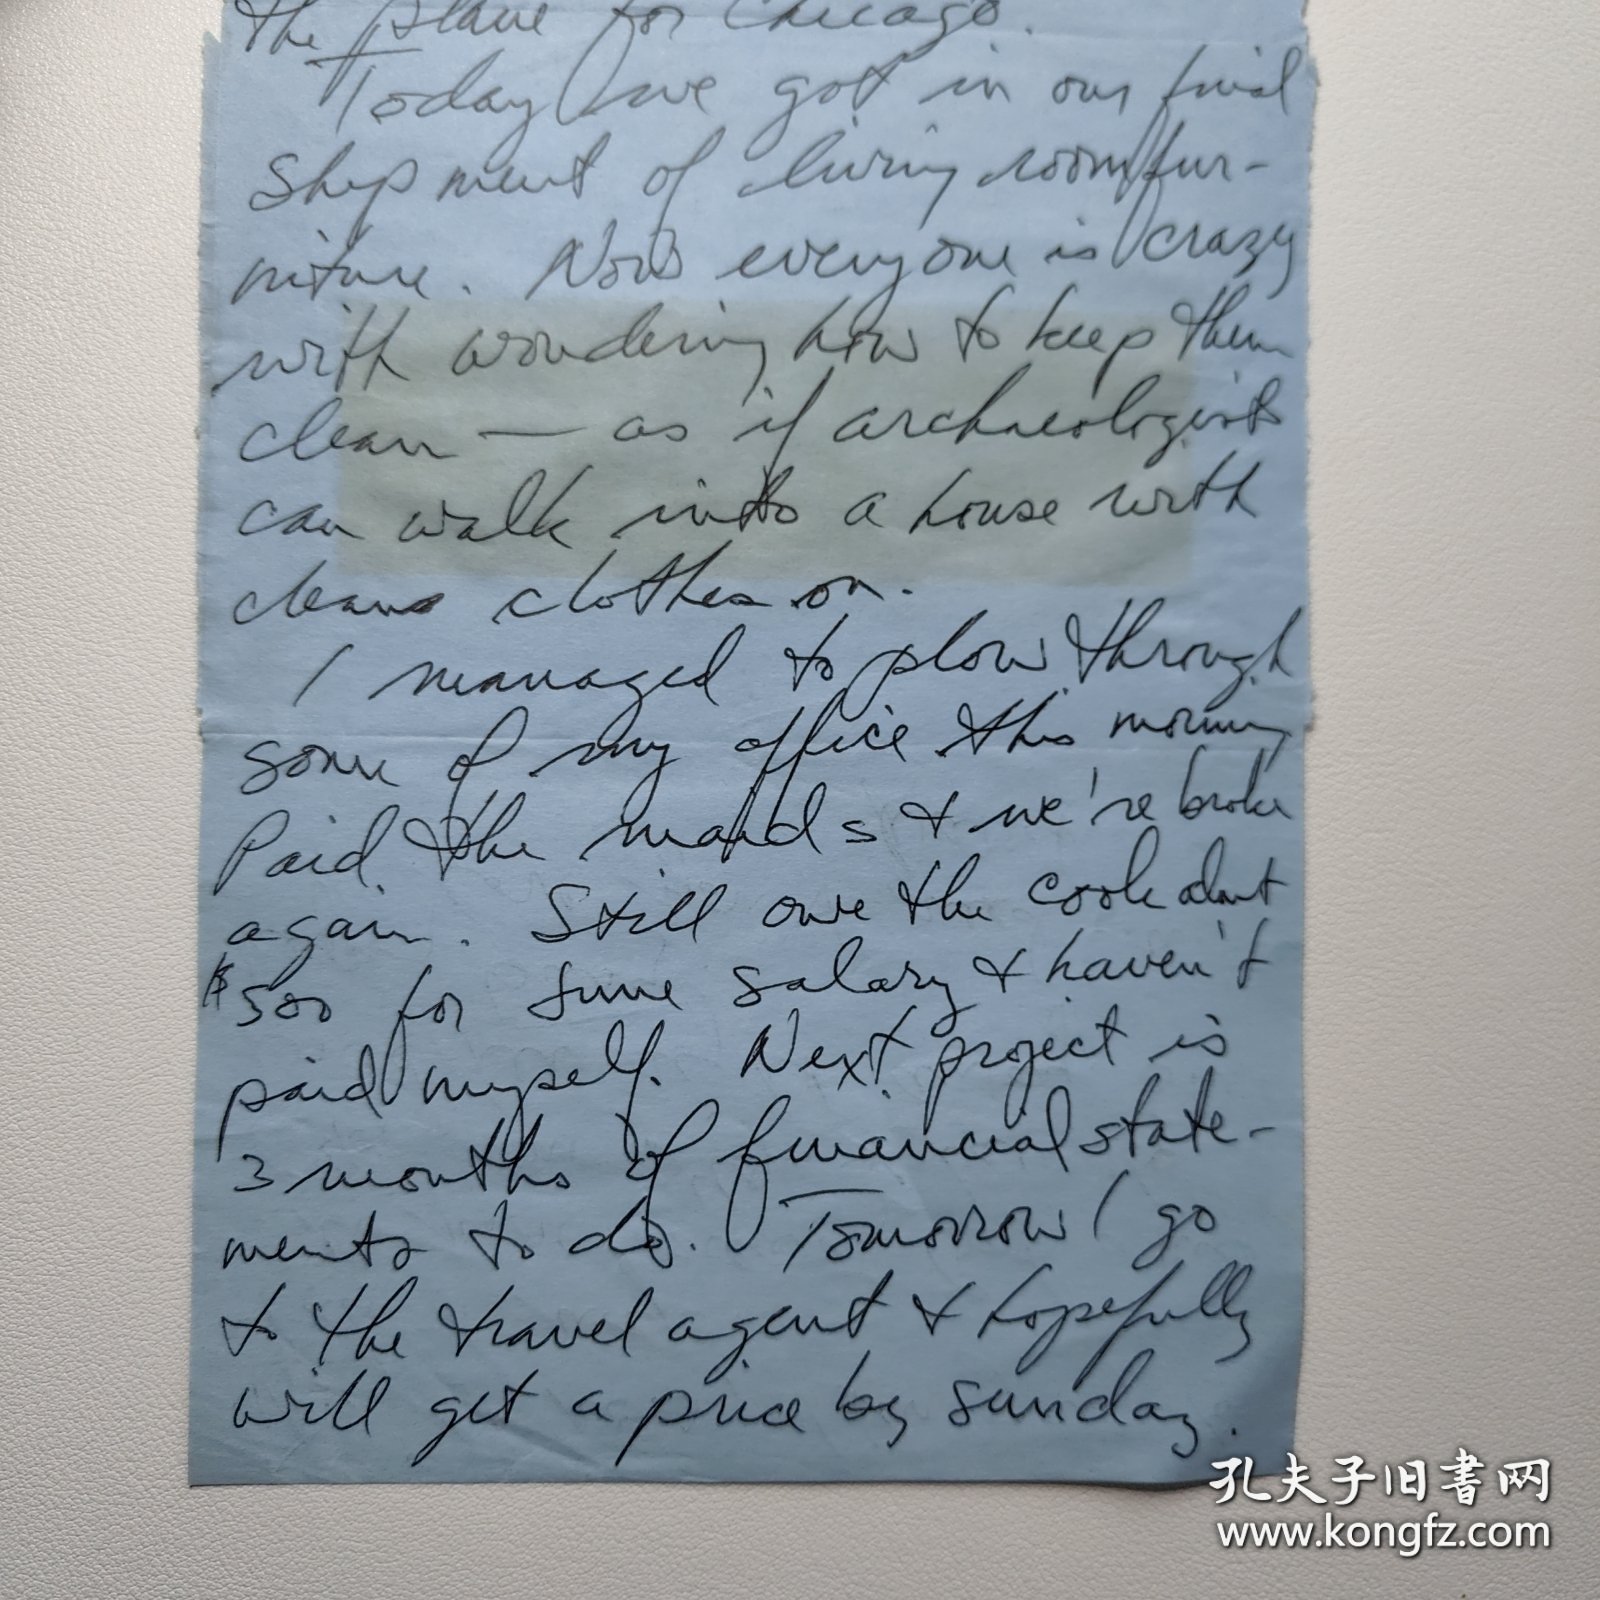 the plane for Chicago.
Today we got in our final
shipment of living room fur-
niture. Now everyone is crazy
with wondering how to keep them
clean — as if archaeologists
can walk into a house with
clean clothes on.
I managed to plow through
some of my office this morning
Paid the maids & we're broke
again. Still owe the cook about
$500 for June salary & haven't
paid myself. Next project is
3 months of financial state-
ments to do. Tomorrow I go
to the travel agent & hopefully
will get a price by Sunday.
孔夫子旧书网
www.kongfz.com